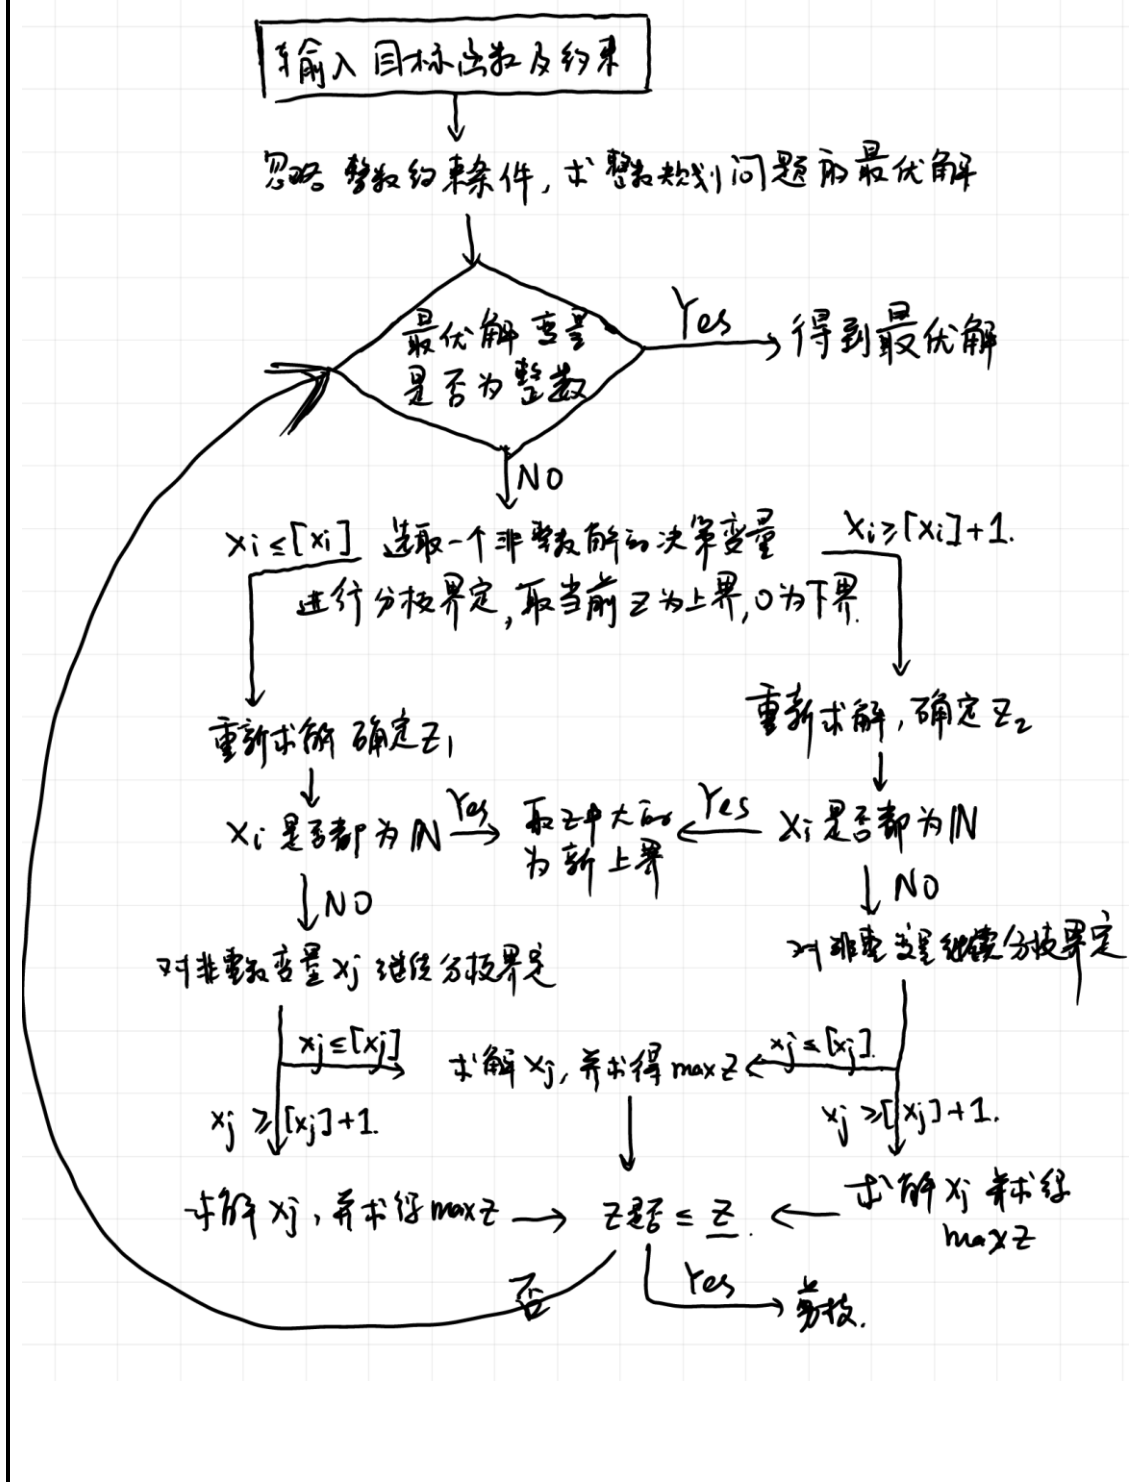 输入目标函数及约束
忽略整数约束条件,求整数规划问题的最优解
最优解变量
是否为整数
Yes
得到最优解
NO
xi≤[xi]
选取一个非整数解的决策变量
进行分枝界定,取当前z为上界,0为下界.
xi≥[xi]+1.
重新求解 确定z1
重新求解,确定z2
xi是否都为N
Yes
取z中大的
为新上界
Yes
xi是否都为N
NO
NO
对非整数变量xj继续分枝界定
对非整变量继续分枝界定
xj≤[xj]
求解xj,并求得maxz
xj≤[xj].
xj≥[xj]+1.
xj≥[xj]+1.
求解xj,并求得maxz
z是否≤z.
求解xj并求得
maxz
否
Yes
剪枝.